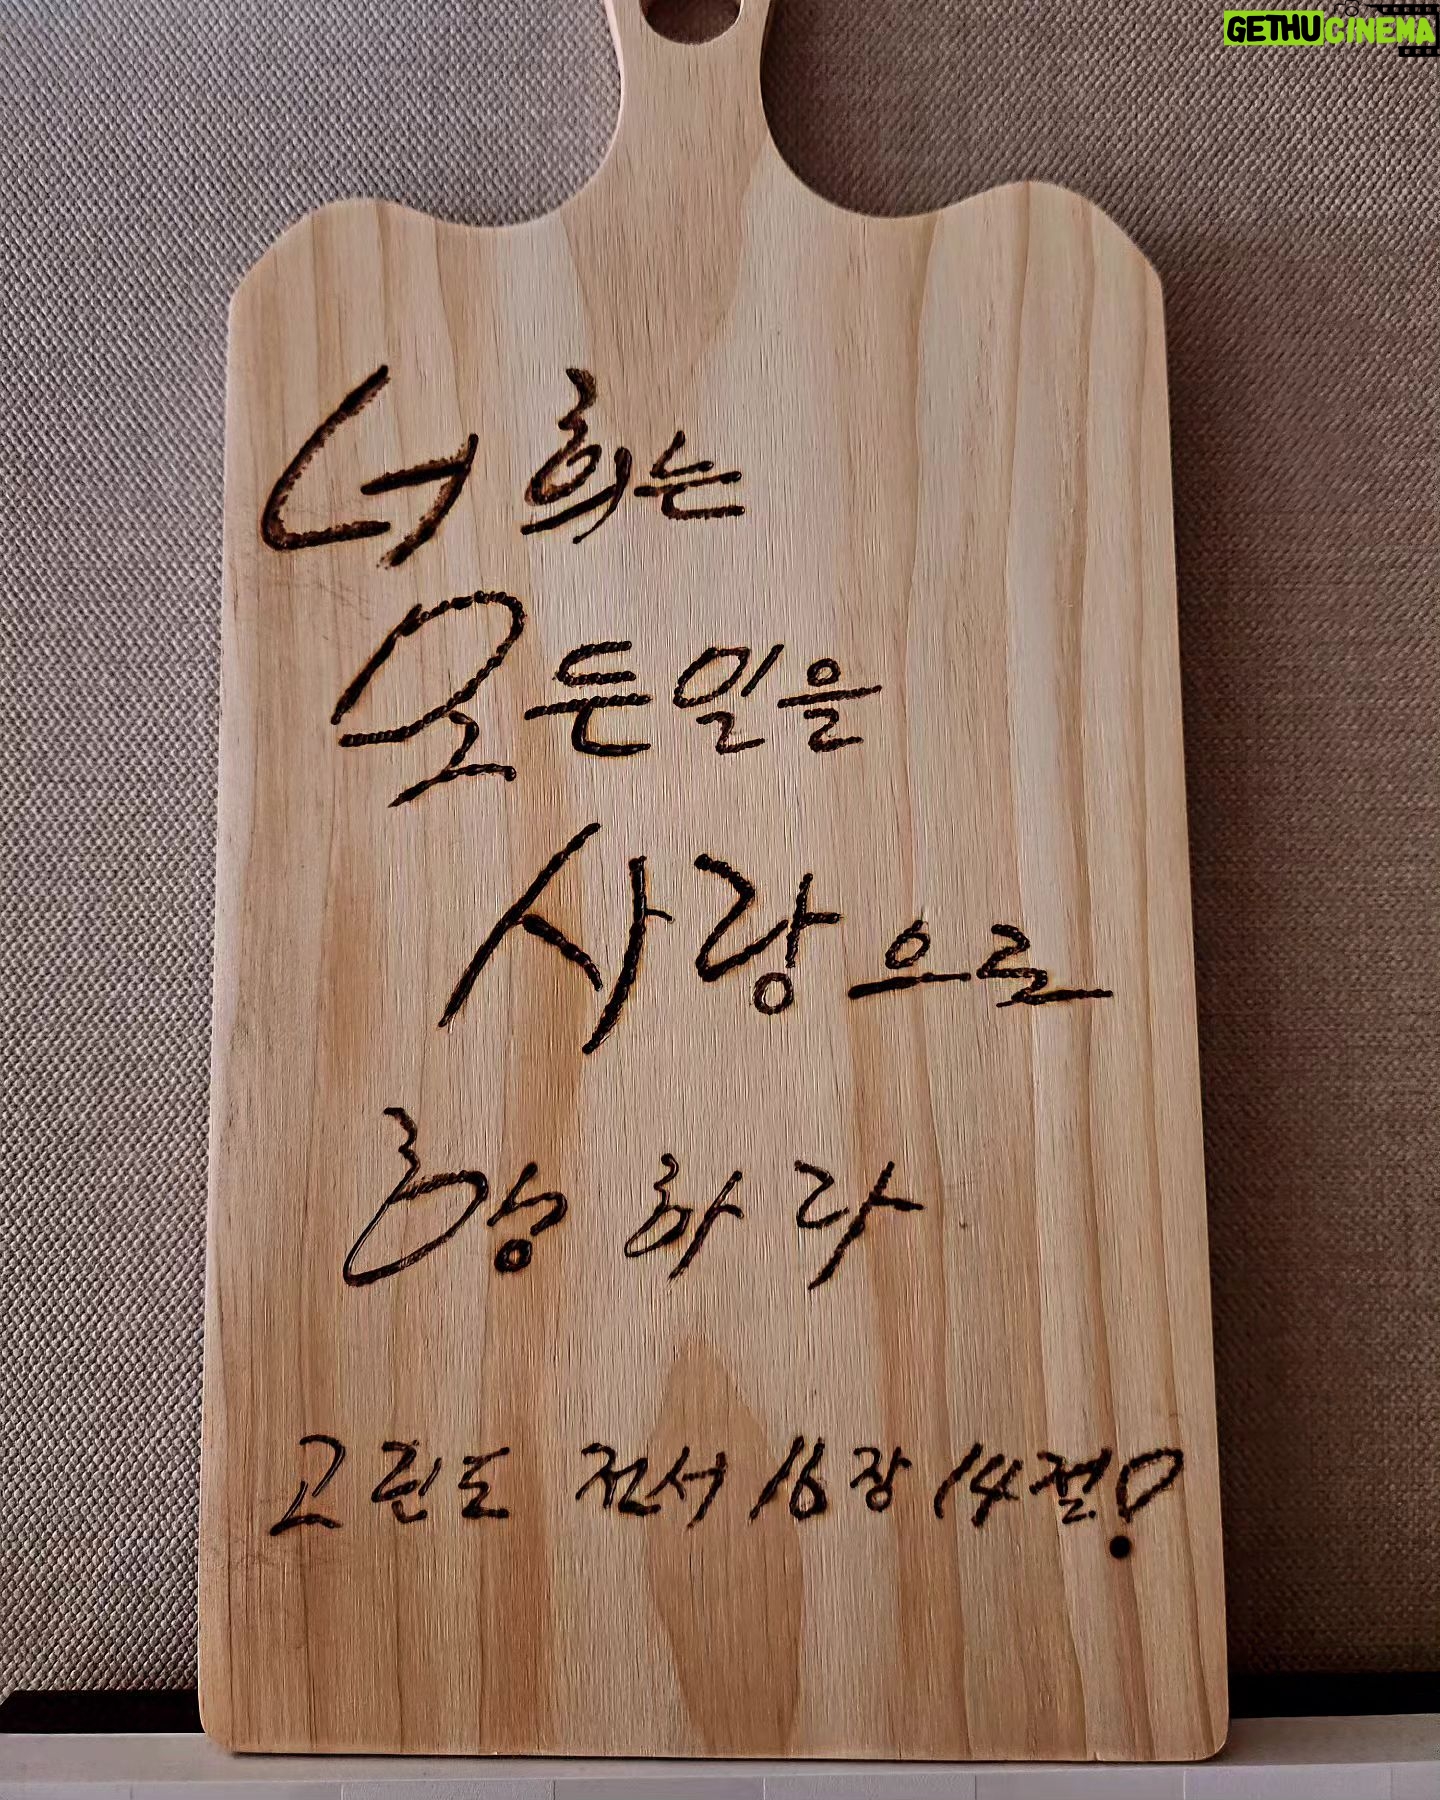 GETHUCINEMA
너희는
모든일을
사랑으로
행하라
고린도 전서 16장 14절!